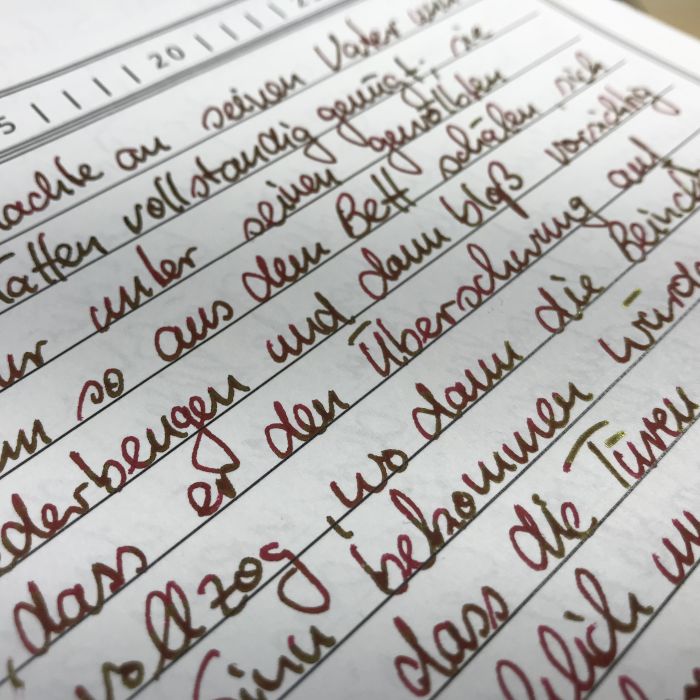 5 20
dachte an seinen Vater und
hätten vollständig genügt; sie
ur unter seinen gewölbten
so aus dem Bett schälen, sich
derbeugen und dann bloß vorsichtig
, dass er den Überschwung auf
vollzog, wo dann die Beinch
Sinn bekommen würde
dass die Türen